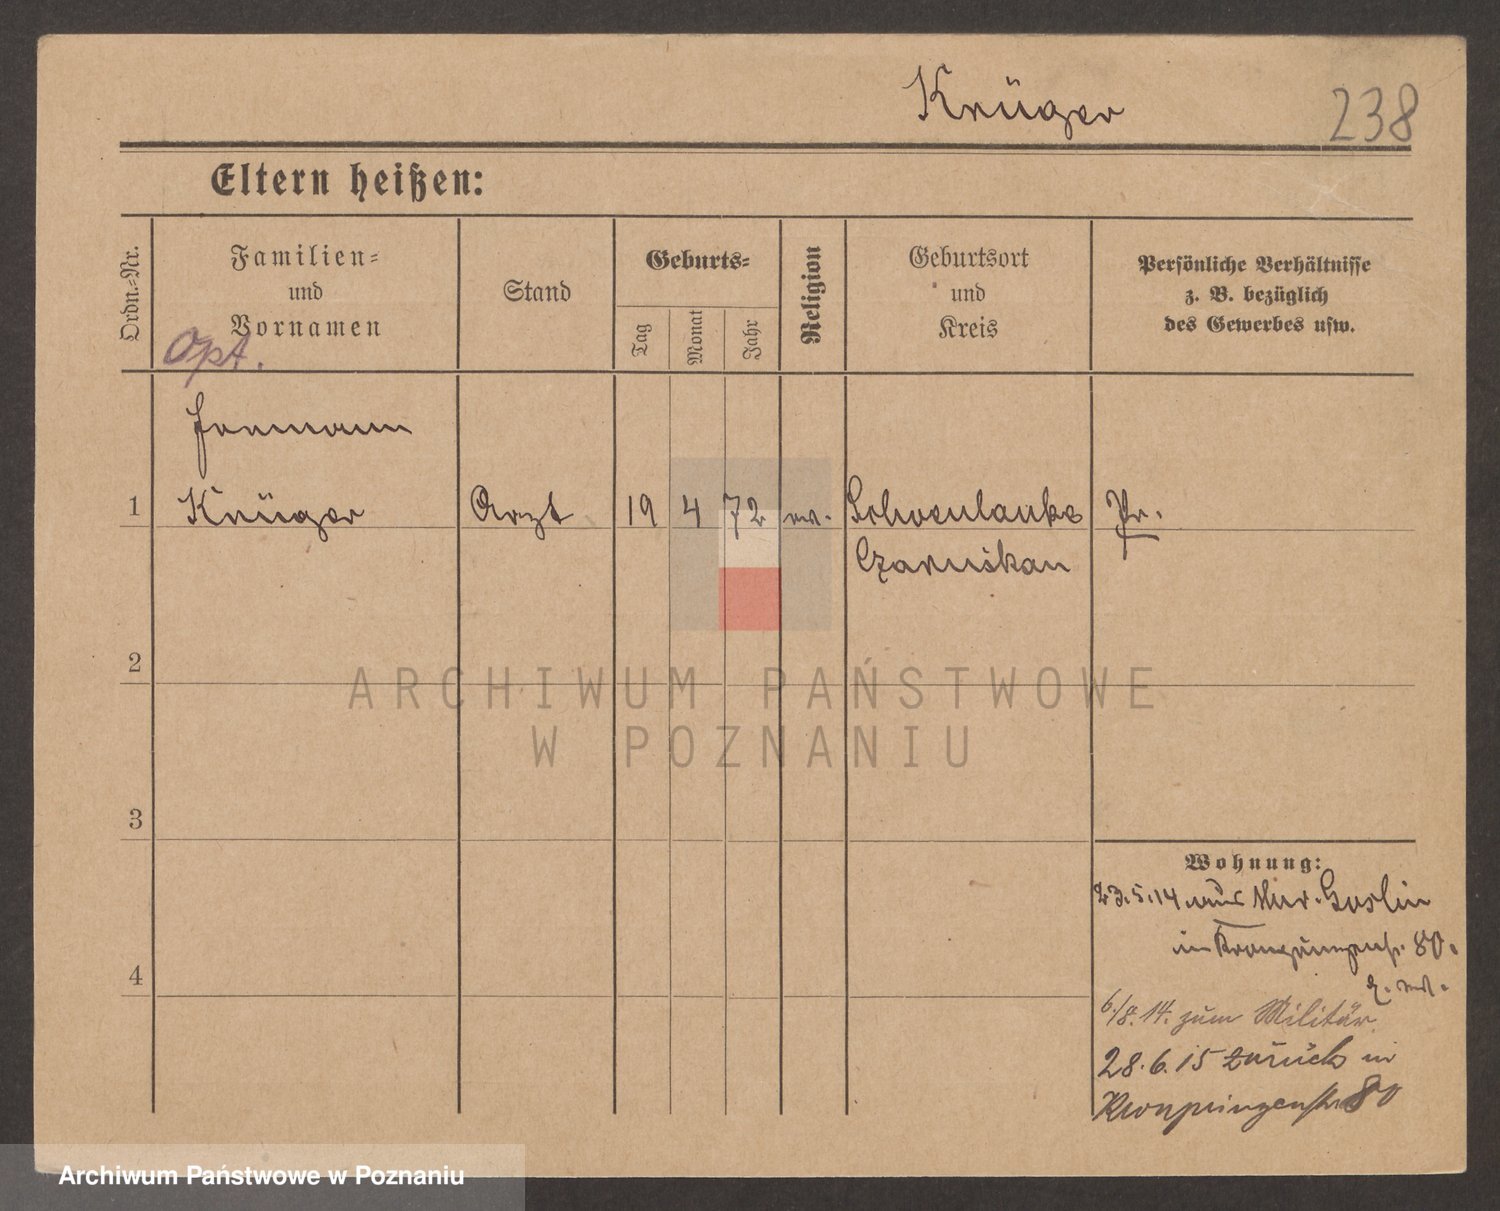 Krüger 238
Eltern heißen:
Ordn.-Nr.
Familien-
und
Vornamen
Opt.
Stand
Geburts-
Tag
Monat
Jahr
Religion
Geburtsort
und
Kreis
Persönliche Verhältnisse
z. B. bezüglich
des Gewerbes usw.
Hermann
1 Krüger Arzt 19 4 72 ev. Schoenlanke Pr.
Czarnikau
2
ARCHIWUM PAŃSTWOWE
W POZNANIU
3
Wohnung:
23.5.14 aus Mur. Goslin
in Kronprinzenstr. 80.
6./8. 14. zum Militär
28.6.15 zurück in
Kronprinzenstr 80
4
Archiwum Państwowe w Poznaniu